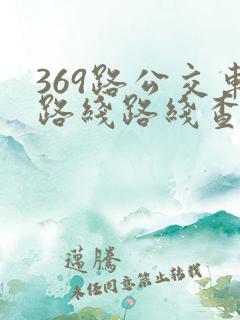 369路公交車
路綫路綫查
邁騰
未经同意禁止转载